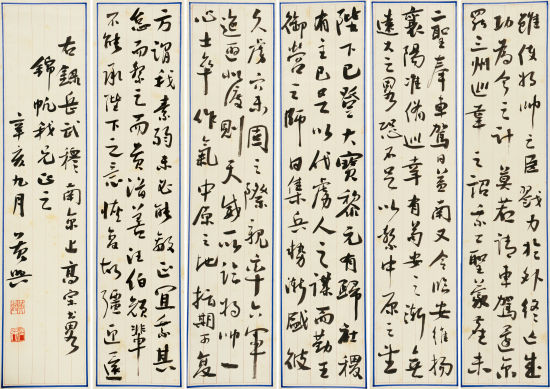 雖使將帥之臣戮力於外終亡成
功為今之計莫若請車駕還京
罷三州巡幸之詔乘二聖蒙塵未
二聖奉車駕日益南又令長安維揚
襄陽准備巡幸有苟安之漸無
遠大之略恐不足以繫中原之望
陛下已登大寶黎元有歸社稷
有主已足以伐虜人之謀而勤王
御營之師日集兵勢漸盛彼
久虜穴未固之際親率六軍
迤邐北渡則天威所臨將帥一
心士卒作氣中原之地指期可復
方謂我素弱未必能敵正宜乘其
怠而擊之而黃潛善汪伯顏輩
不能承陛下之意恢復故疆迎還
右錄岳武穆南京上高宗書略
錦帆我兄正之
辛亥九月 黃興